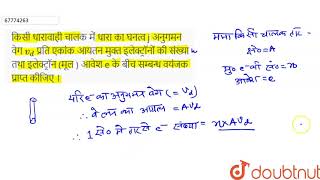 67774263
किसी धारावाही चालक में धारा का घनत्व j अनुगमन
वेग v_d प्रति एकांक आयतन मुक्त इलेक्ट्रॉनों की संख्या n
तथा इलेक्ट्रॉन (मूल) आवेश e के बीच सम्बन्ध व्यंजक
प्राप्त कीजिए ।
माना किसी चालक
क्षे० = A
मु० e की सं० = n
आवेश = e
यदि e का अनुगमन वेग (= Vd)
∴ बेलन का आयतन = AVd
∴ 1 से० में e संख्या = n x AVd
doubtnut